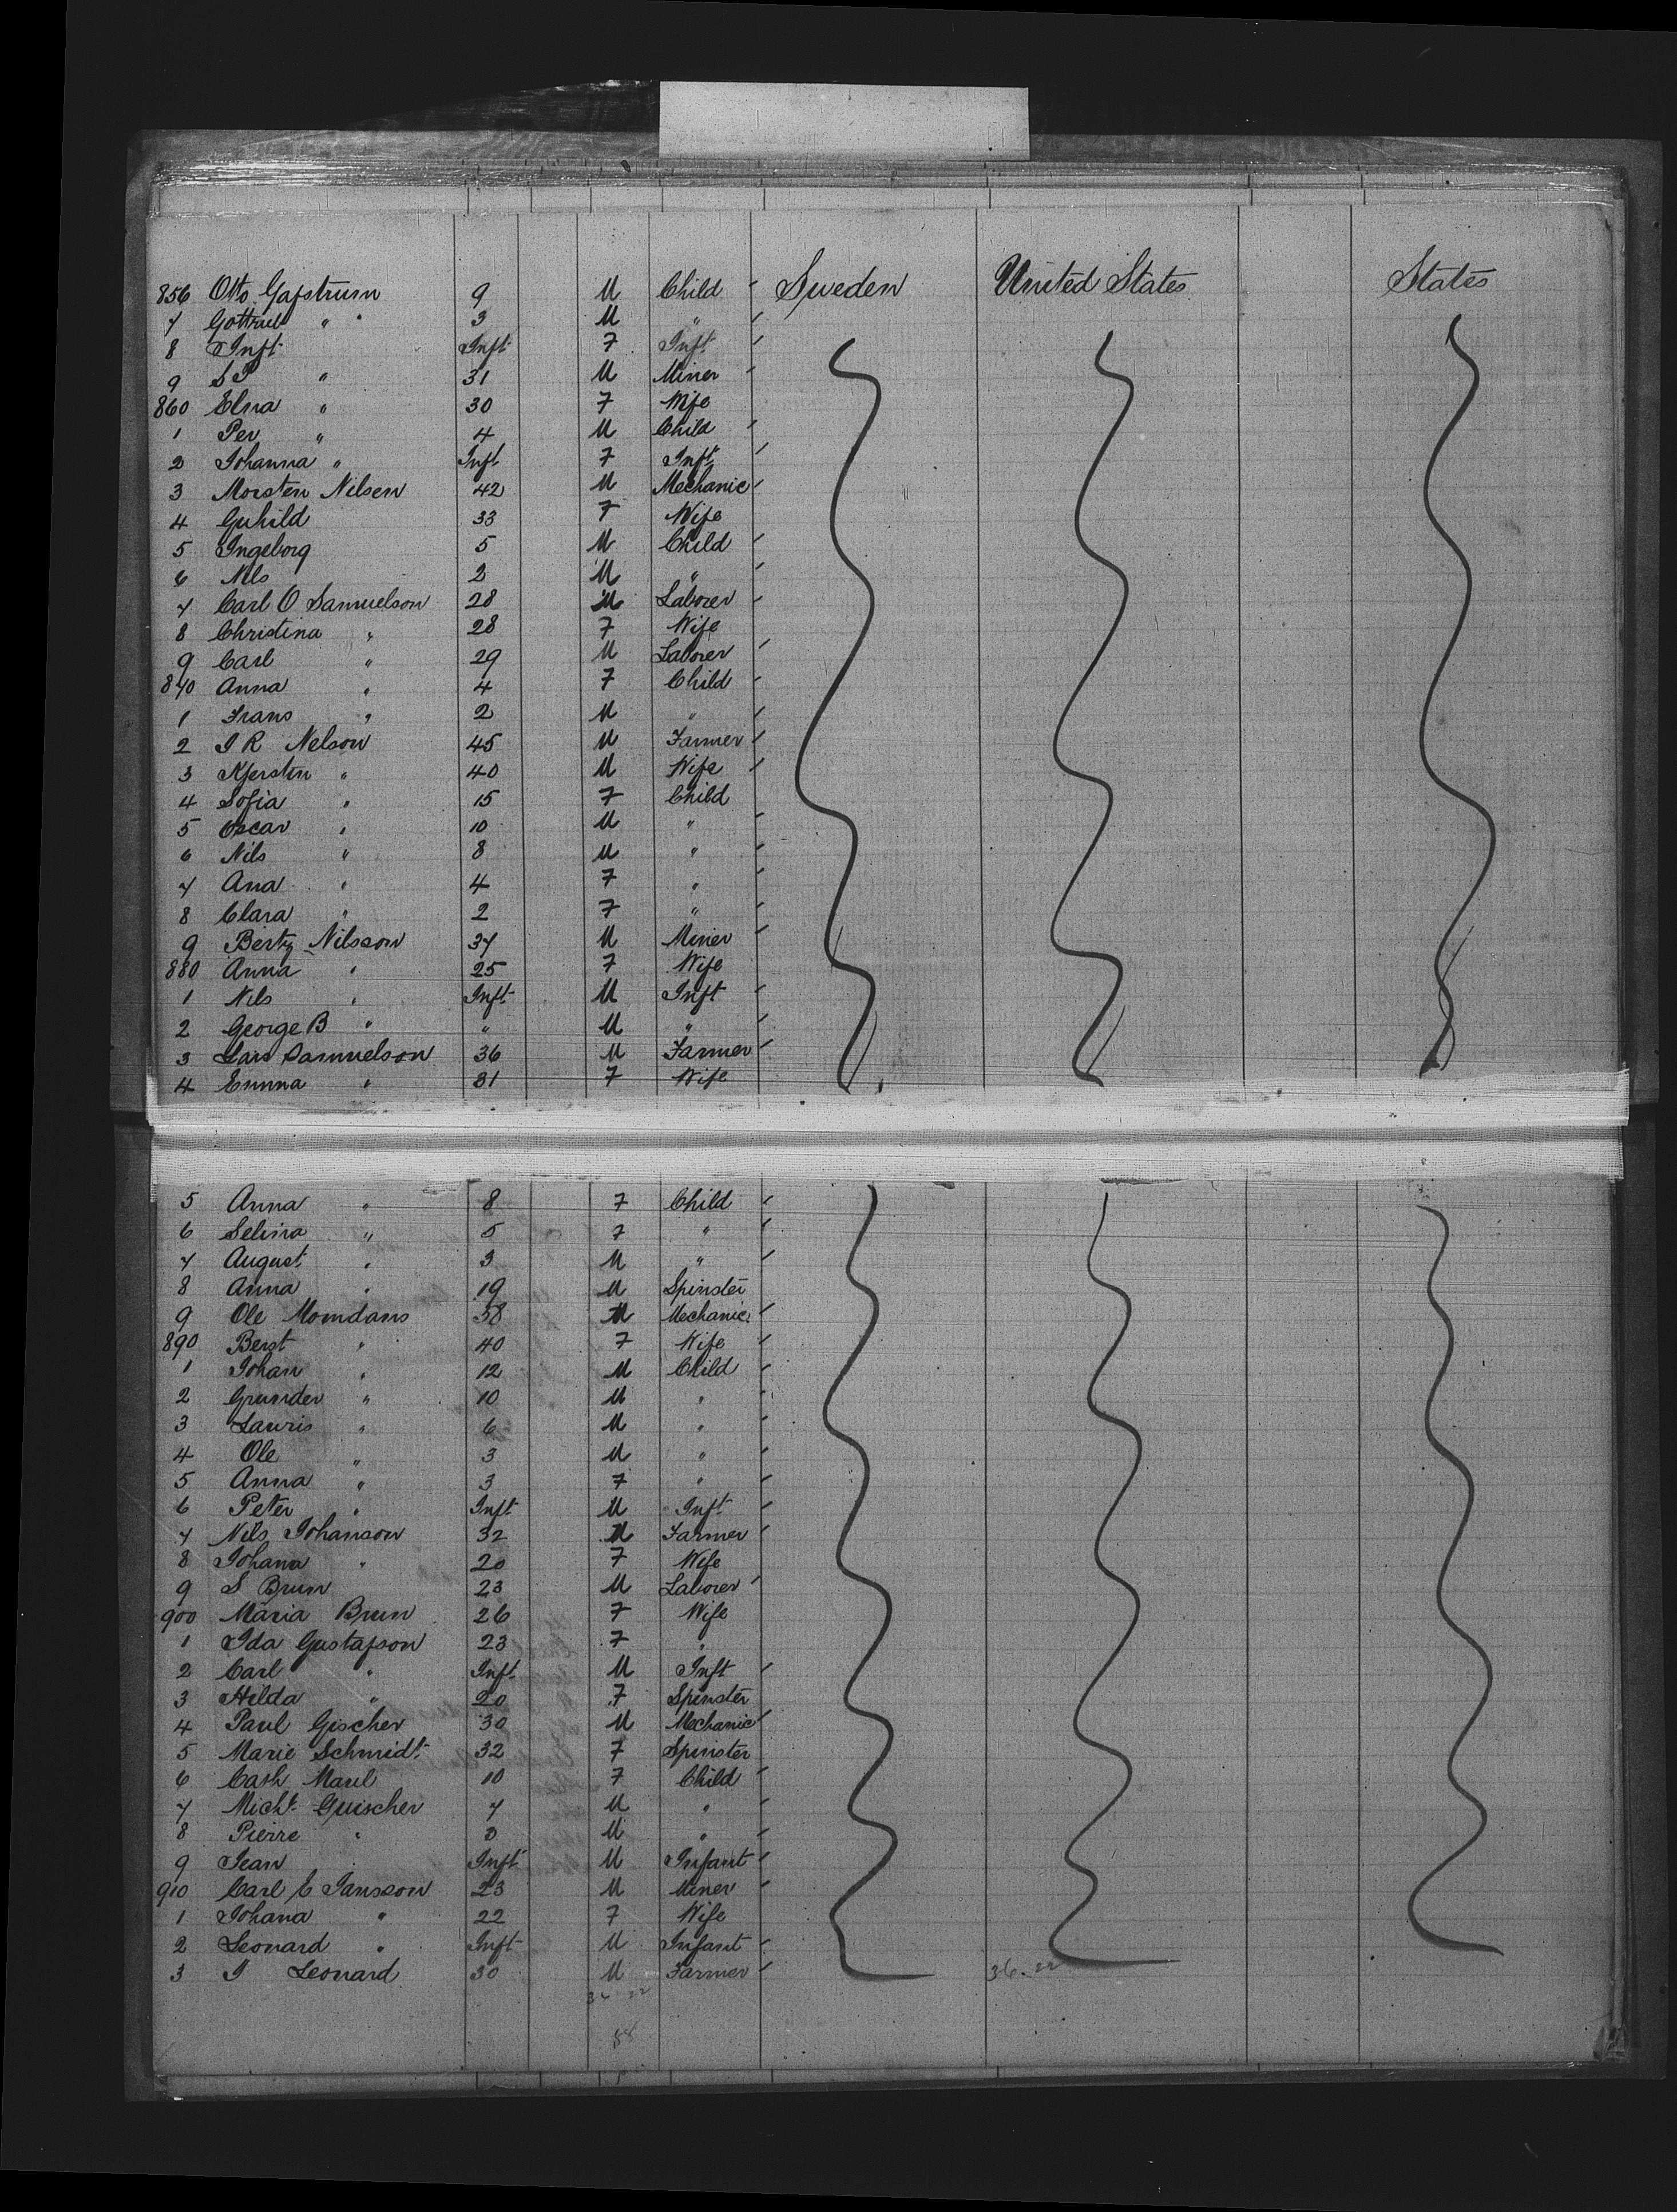 856 Otto Gafstrum 9 M Child Sweden United States States
7 Gottrieb " 3 M "
8 Inft Inft F Inft
9 S P " 31 M Miner
860 Elna " 30 F Wife
1 Per " 4 M Child
2 Johanna " Inft F Inft
3 Morsten Nilsen 42 M Mechanic
4 Guhild 33 F Wife
5 Ingeborg 5 M Child
6 Nils 2 M "
7 Carl O Samuelson 28 M Laborer
8 Christina " 28 F Wife
9 Carl " 29 M Laborer
870 Anna " 4 F Child
1 Frans " 2 M "
2 I R Nelson 45 M Farmer
3 Kjersten " 40 M Wife
4 Sofia " 15 F Child
5 Oscar " 10 M "
6 Nils " 8 M "
7 Ana " 4 F "
8 Clara " 2 F "
9 Berty Nilsson 37 M Miner
880 Anna " 25 F Wife
1 Nils " Inft M Inft
2 George B " " M "
3 Lars Samuelson 36 M Farmer
4 Emma " 31 F Wife
5 Anna " 8 F Child
6 Selina " 5 F "
7 August " 3 M "
8 Anna " 19 M Spinster
9 Ole Momdans 38 M Mechanic
890 Berst " 40 F Wife
1 Johan " 12 M Child
2 Grunder " 10 M "
3 Lauris " 6 M "
4 Ole " 3 M "
5 Anna " 3 F "
6 Peter " Inft M Inft
7 Nils Johanson 32 M Farmer
8 Johana " 20 F Wife
9 S Brun 23 M Laborer
900 Maria Brun 26 F Wife
1 Ida Gustafson 23 F "
2 Carl " Inft M Inft
3 Hilda " 20 F Spinster
4 Paul Gischer 30 M Mechanic
5 Marie Schmidt 32 F Spinster
6 Cash Maul 10 F Child
7 Micht Guischer 7 M "
8 Pierre " M "
9 Jean Inft M Infant
910 Carl E Jansson 23 M Miner
1 Johana " 22 F Wife
2 Leonard " Inft M Infant
3 I Leonard 30 M Farmer 36-22
88